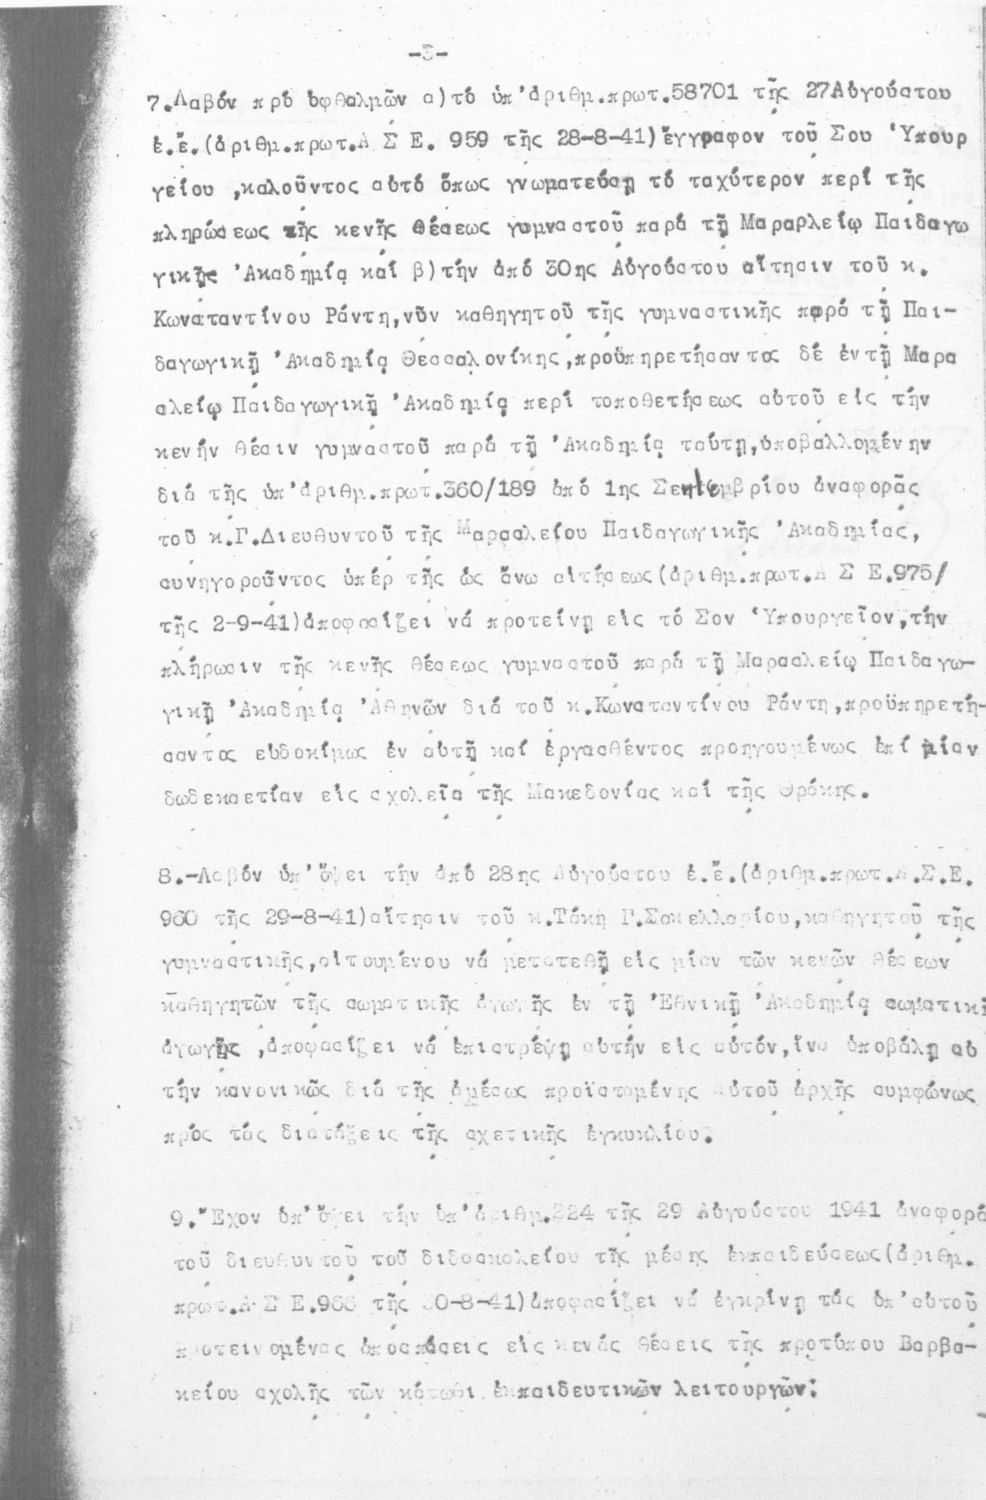 -3-
7.Λαβόν πρό ὀφθαλμῶν α)τό ὑπ'ἀριθμ.πρωτ.58701 τῆς 27Αὐγούστου
ἐ.ἔ.(ἀριθμ.πρωτ.Α Σ Ε. 959 τῆς 28-8-41)ἔγγραφον τοῦ Σου Ὑπουρ
γείου ,καλοῦντος αὐτό ὅπως γνωματεύσῃ τό ταχύτερον περί τῆς
πληρώσεως τῆς κενῆς θέσεως γυμναστοῦ παρά τῇ Μαραρλείῳ Παιδαγω
γικῇς Ἀκαδημίᾳ καί β)τήν ἀπό 30ης Αὐγούστου αἴτησιν τοῦ κ.
Κωνσταντίνου Ράντη,νῦν καθηγητοῦ τῆς γυμναστικῆς παρά τῇ Παι-
δαγωγικῇ Ἀκαδημίᾳ Θεσσαλονίκης,προϋπηρετήσαντος δέ ἐν τῇ Μαρα
σλείῳ Παιδαγωγικῇ Ἀκαδημίᾳ περί τοποθετήσεως αὐτοῦ εἰς τήν
κενήν θέσιν γυμναστοῦ παρά τῇ Ἀκαδημίᾳ ταύτῃ,ὑποβαλλομένην
διά τῆς ὑπ'ἀριθμ.πρωτ.360/189 ἀπό 1ης Σεπτεμβρίου ἀναφορᾶς
τοῦ κ.Γ.Διευθυντοῦ τῆς Μαρασλείου Παιδαγωγικῆς Ἀκαδημίας,
συνηγοροῦντος ὑπέρ τῆς ὡς ἄνω αἰτήσεως(ἀριθμ.πρωτ.Α Σ Ε.975/
τῆς 2-9-41)ἀποφασίζει νά προτείνῃ εἰς τό Σον Ὑπουργεῖον,τήν
πλήρωσιν τῆς κενῆς θέσεως γυμναστοῦ παρά τῇ Μαρασλείῳ Παιδαγω-
γικῇ Ἀκαδημίᾳ Ἀθηνῶν διά τοῦ κ.Κωνσταντίνου Ράντη,προϋπηρετή-
σαντος εὐδοκίμως ἐν αὐτῇ καί ἐργασθέντος προηγουμένως ἐπί μίαν
δωδεκαετίαν εἰς σχολεῖα τῆς Μακεδονίας καί τῆς Θράκης.
8.-Λαβόν ὑπ'ὄψει τήν ἀπό 28ης Αὐγούστου ἐ.ἔ.(ἀριθμ.πρωτ.Α.Σ.Ε.
960 τῆς 29-8-41)αἴτησιν τοῦ κ.Τάκη Γ.Σακελλαρίου,καθηγητοῦ τῆς
γυμναστικῆς,αἰτουμένου νά μετατεθῇ εἰς μίαν τῶν κενῶν θέσεων
καθηγητῶν τῆς σωματικῆς ἀγωγῆς ἐν τῇ Ἐθνικῇ Ἀκαδημίᾳ σωματικῆ
ἀγωγῆς ,ἀποφασίζει νά ἐπιστρέψῃ αὐτήν εἰς αὐτόν,ἵνα ὑποβάλῃ αὐ
τήν κανονικῶς διά τῆς ἀμέσως προϊσταμένης αὐτοῦ ἀρχῆς συμφώνως
πρός τάς διατάξεις τῆς σχετικῆς ἐγκυκλίου.
9.Ἔχον ὑπ'ὄψει τήν ὑπ'ἀριθμ.224 τῆς 29 Αὐγούστου 1941 ἀναφορά
τοῦ διευθυντοῦ τοῦ διδασκαλείου τῆς μέσης ἐκπαιδεύσεως(ἀριθμ.
πρωτ.Α Σ Ε.966 τῆς 30-8-41)ἀποφασίζει νά ἐγκρίνῃ τάς ὑπ'αὐτοῦ
προτεινομένας ἀποσπάσεις εἰς κενάς θέσεις τῆς προτύπου Βαρβα-
κείου σχολῆς τῶν κάτωθι ἐκπαιδευτικῶν λειτουργῶν: